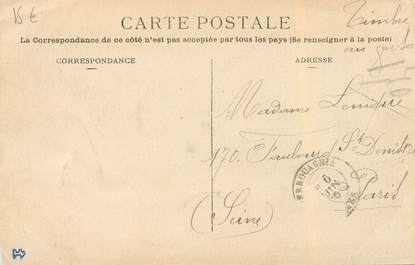 15 €
CARTE POSTALE
Timbre
au verso
La Correspondance de ce côté n'est pas acceptée par tous les pays (Se renseigner à la poste)
CORRESPONDANCE
ADRESSE
Madame
170, Faubourg St Denis
Paris
(Seine)